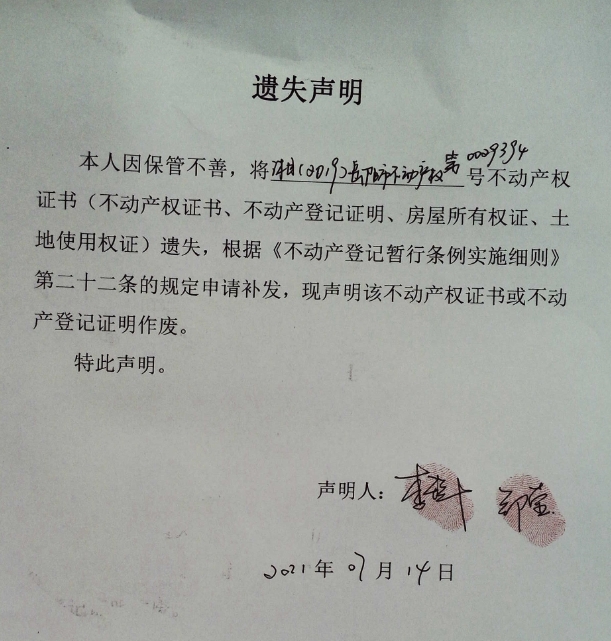 遗失声明
本人因保管不善，将湘(2019)岳阳市不动产权第0009394号不动产权
证书（不动产权证书、不动产登记证明、房屋所有权证、土
地使用权证）遗失，根据《不动产登记暂行条例实施细则》
第二十二条的规定申请补发，现声明该不动产权证书或不动
产登记证明作废。
特此声明。
声明人：李 邓莹
2021年07月14日